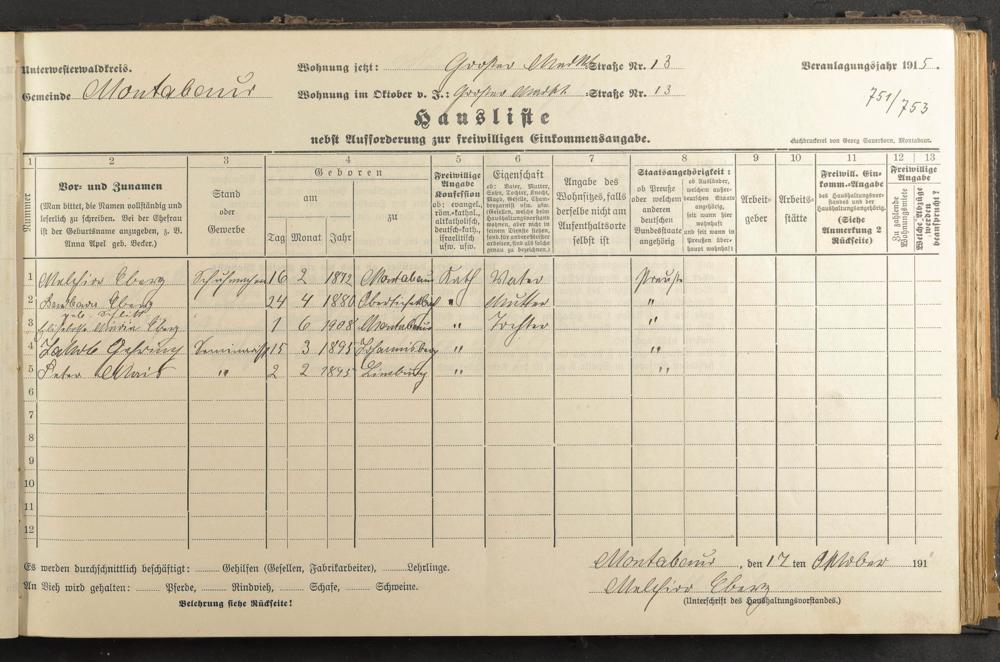 Unterwesterwaldkreis.
Wohnung jetzt: Großer Markt Straße Nr. 13
Veranlagungsjahr 1915.
Gemeinde Montabaur
Wohnung im Oktober v. J.: Großer Markt Straße Nr. 13
751/753
Hausliste
nebst Aufforderung zur freiwilligen Einkommensangabe.
Buchdruckerei von Georg Sauerborn, Montabaur.
1 2 3 4 5 6 7 8 9 10 11 12 13
Nummer
Vor- und Zunamen
(Man bittet, die Namen vollständig und
leserlich zu schreiben. Bei der Ehefrau
ist der Geburtsname anzugeben, z. B.
Anna Apel geb. Becker.)
Stand
oder
Gewerbe
Geboren
am
zu
Tag Monat Jahr
Freiwillige
Angabe
Konfession
ob: evangel.,
röm.-kathol.,
altkatholisch,
deutsch-kath.,
israelitisch
usw. usw.
Eigenschaft
ob: Vater, Mutter,
Sohn, Tochter, Knecht,
Magd, Geselle, Cham-
bregarnist usw. usw.
(Gesellen, welche beim
Haushaltungsvorstand
wohnen, aber nicht in
seinem Dienste stehen,
sond. für andere Meister
arbeiten, sind als solche
genau zu bezeichnen.)
Angabe des
Wohnsitzes, falls
derselbe nicht am
Aufenthaltsorte
selbst ist
Staatsangehörigkeit:
ob Preuße
oder welchem
anderen
deutschen
Bundesstaate
angehörig
ob Ausländer,
welchem außer-
deutschen Staate
angehörig,
seit wann hier
wohnhaft
und seit wann in
Preußen über-
haupt wohnhaft
Arbeit-
geber
Arbeits-
stätte
Freiwill. Ein-
komm.-Angabe
des Haushaltungsvor-
standes und der
Haushaltungsangehörig.
(Siehe
Anmerkung 2
Rückseite)
Freiwillige
Angabe
Zu zahlende
Wohnungsmiete
Welche Abzüge
werden
beansprucht?
1 Melchior Eberz Schuhmacher 16 2 1872 Montabaur Kath Vater Preuße
2 Barbara Eberz 24 4 1880 " Mutter "
geb. Schlitt
3 Elisabeth Maria Eberz 1 6 1908 Montabaur " Tochter "
4 Jakob Gehring Seminarist 15 3 1895 Johannisberg " "
5 Peter " 2 2 1895 Limburg " "
6
7
8
9
10
11
12
Es werden durchschnittlich beschäftigt: Gehilfen (Gesellen, Fabrikarbeiter), Lehrlinge.
An Vieh wird gehalten: Pferde, Rindvieh, Schafe, Schweine.
Belehrung siehe Rückseite!
Montabaur, den 17 ten Oktober 191
Melchior Eberz
(Unterschrift des Haushaltungsvorstandes.)